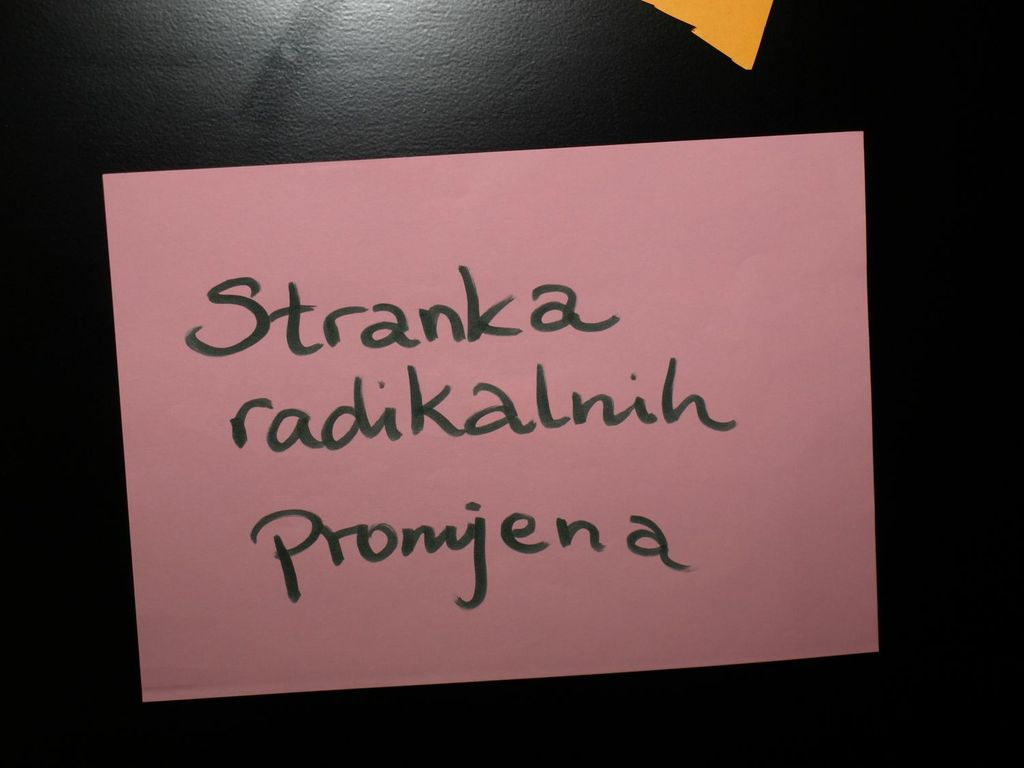 Stranka
radikalnih
promjena